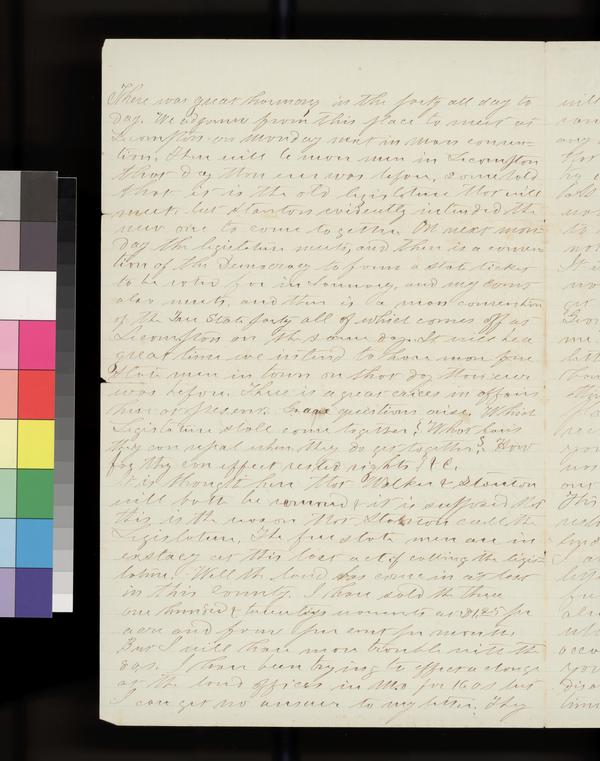 There was great harmony in the party all day to
day. We adjourn from this place to meet at
Lecompton on Monday next in Mass conven-
tion. There will be more men in Lecompton
that day than ever was before, some hold
that it is the old legislature that will
meet, but Stanton evidently intended the
new one to come together. On next mon-
day the legislature meets, and there is a conven
tion of the Democracy to form a state ticket
to be voted for in January, and my court
also meets, and there is a mass convention
of the Free State party all of which comes off at
Lecompton on the same day. It will be a
great time we intend to have more free
State men in town on that day than ever
was before. There is a great crises in affairs
here at present. Grave questions arise, Which
Legislature shall come together? What laws
they can repeal when they do get together? How
far they can effect vested rights? &C.
It is thought here that Walker & Stanton
will both be removed & it is supposed that
this is the reason that Stanton calls the
Legislature. The free state men are in
extacy at this last act of calling the legis-
lature. Well the land has come in at last
in this County. I have sold the three
one hundred & twenties warrants at $1,25 per
acre and from per cent per month
But I will have more trouble with the
I have been trying to effect a change
at the land offices in Mo for 160s but
I can get no answer to my letter. They